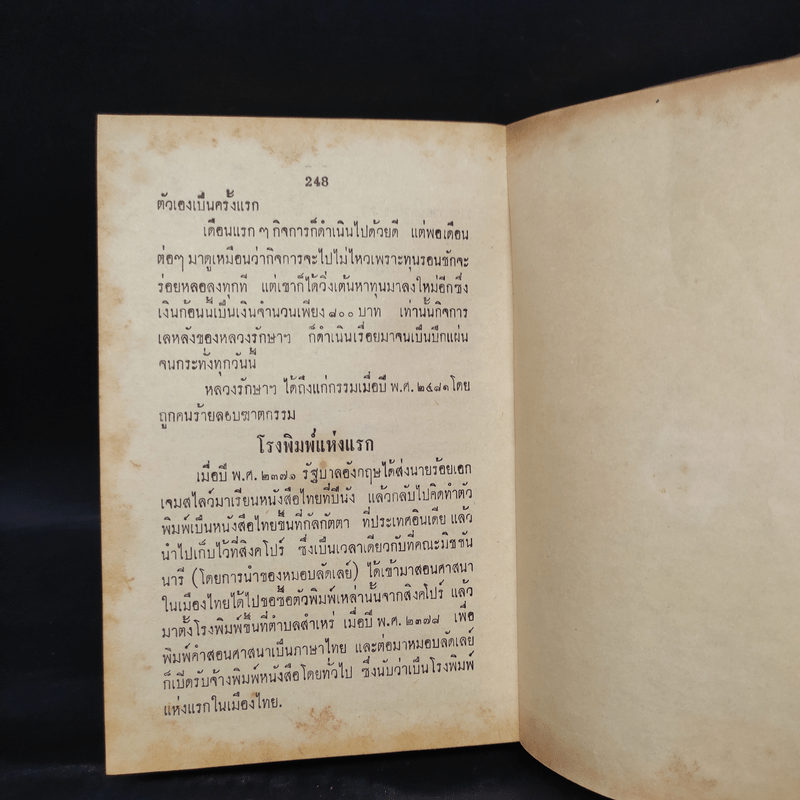 248
ตัวเองเป็นครั้งแรก
เดือนแรก ๆ กิจการก็ดำเนินไปด้วยดี แต่พอเดือน
ต่อๆ มาดูเหมือนว่ากิจการจะไปไม่ไหวเพราะทุนรอนชักจะ
ร่อยหลอลงทุกที แต่เขาก็ได้วิ่งเต้นหาทุนมาลงใหม่อีกซึ่ง
เงินก้อนนี้เป็นเงินจำนวนเพียง ๘๐๐ บาท เท่านั้นกิจการ
เลหลังของหลวงรักษาฯ ก็ดำเนินเรื่อยมาจนเป็นปึกแผ่น
จนกระทั่งทุกวันนี้
หลวงรักษาฯ ได้ถึงแก่กรรมเมื่อปี พ.ศ. ๒๔๘๑ โดย
ถูกคนร้ายลอบฆาตกรรม
โรงพิมพ์แห่งแรก
เมื่อปี พ.ศ. ๒๓๗๑ รัฐบาลอังกฤษได้ส่งนายร้อยเอก
เจมสไลว์มาเรียนหนังสือไทยที่ปีนัง แล้วกลับไปคิดทำตัว
พิมพ์เป็นหนังสือไทยขึ้นที่กัลกัตตา ที่ประเทศอินเดีย แล้ว
นำไปเก็บไว้ที่สิงคโปร์ ซึ่งเป็นเวลาเดียวกับที่คณะมิชชัน
นารี (โดยการนำของหมอบลัดเลย์) ได้เข้ามาสอนศาสนา
ในเมืองไทยได้ไปขอซื้อตัวพิมพ์เหล่านั้นจากสิงคโปร์ แล้ว
มาตั้งโรงพิมพ์ขึ้นที่ตำบลสำเหร่ เมื่อปี พ.ศ. ๒๓๗๘ เพื่อ
พิมพ์คำสอนศาสนาเป็นภาษาไทย และต่อมาหมอบลัดเลย์
ก็เปิดรับจ้างพิมพ์หนังสือโดยทั่วไป ซึ่งนับว่าเป็นโรงพิมพ์
แห่งแรกในเมืองไทย.